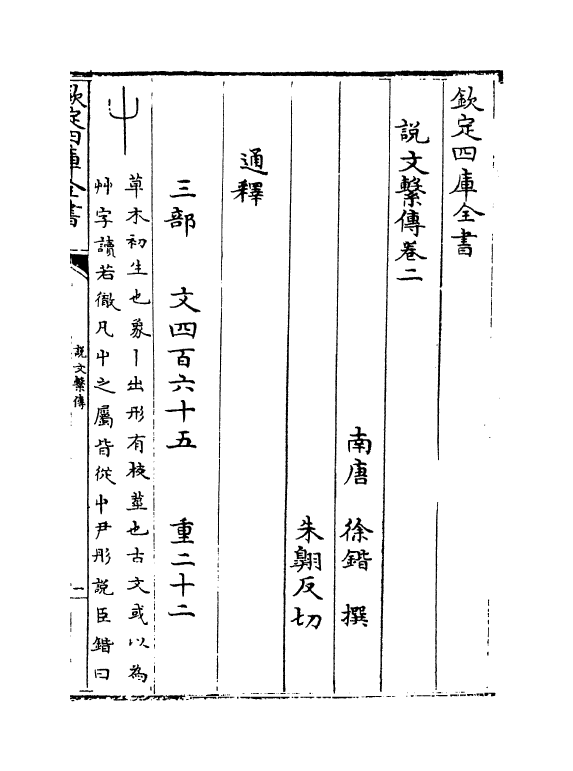 欽定四庫全書
說文繫傳卷二
南唐 徐鍇 撰
朱翺反切
通釋
三部 文四百六十五 重二十二
屮 草木初生也象丨出形有枝莖也古文或以為
艸字讀若徹凡屮之屬皆從屮尹彤說臣鍇曰
欽定四庫全書
說文繫傳
一